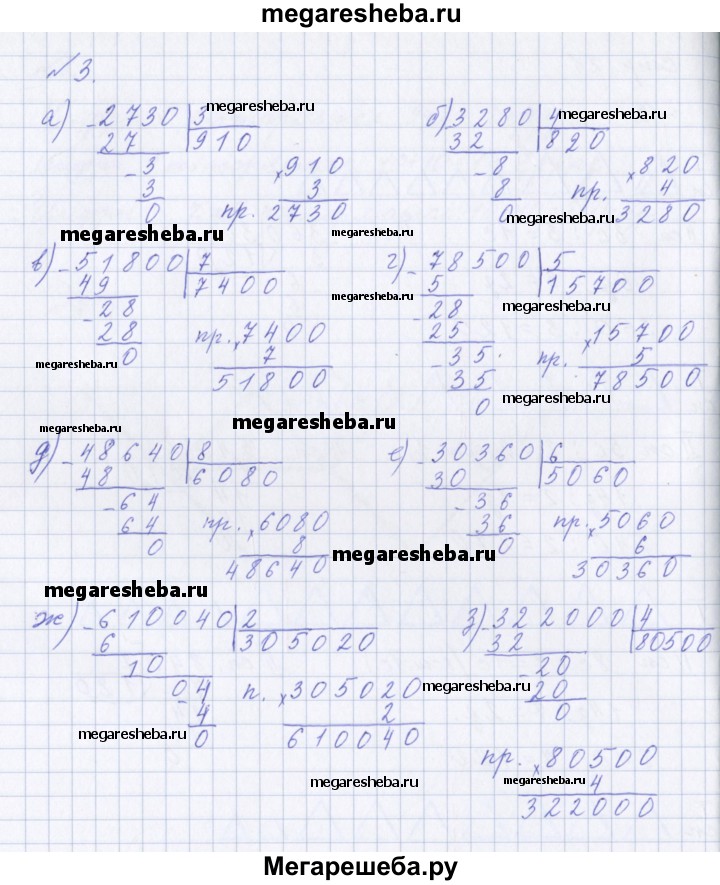 megaresheba.ru
№ 3.
а) - 2730 | 3 megaresheba.ru
27 910
- 3 × 910
3 3
0 пр. 2730
б) 3280 | 4 megaresheba.ru
32 820
- 8 × 820
8 пр. 4
0 3280
megaresheba.ru
megaresheba.ru megaresheba.ru
в) - 51800 | 7
49 7400
- 28
28 пр. × 7400
0 7
51800
megaresheba.ru
г) - 78500 | 5
5 15700
megaresheba.ru megaresheba.ru
- 28
25 × 15700
- 35 пр. 5
35 78500
0
megaresheba.ru
megaresheba.ru megaresheba.ru
д) - 48640 | 8
48 6080
- 64
64 пр. × 6080
0 8
48640
е) - 30360 | 6
30 5060
- 36
36 пр. × 5060
0 6
30360
megaresheba.ru
megaresheba.ru
ж) - 610040 | 2
6 305020
10
- 04 п. × 305020
4 2
0 610040
megaresheba.ru
з) - 322000 | 4
32 80500
- 20
20
0
megaresheba.ru
пр. × 80500
4
322000
megaresheba.ru megaresheba.ru
Мегарешеба.ру